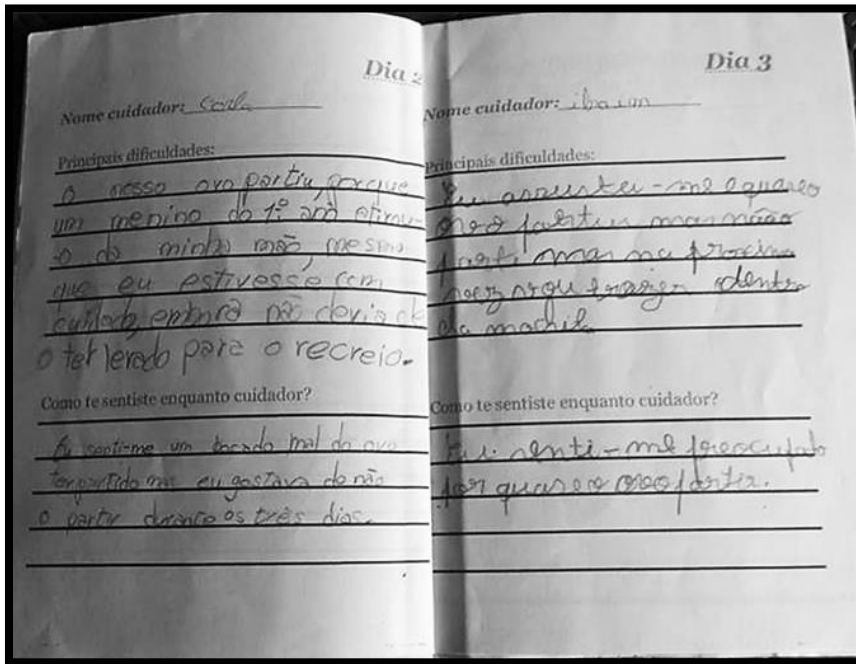 Dia 2
Nome cuidador: Carla
Principais dificuldades:
O nosso ovo partiu, porque
um menino do 1º ano
o da minha mão, mesmo
que eu estivesse com
cuidado, embora não devia de
o ter levado para o recreio.
Como te sentiste enquanto cuidador?
Eu senti-me um bocado mal do ovo
ter partido mas eu gostava de não
o partir durante os três dias.
Dia 3
Nome cuidador:
Principais dificuldades:
Eu assustei-me e quase o
ovo partiu mas não
parti mas na procima
vez trazer dentro
da mochila
Como te sentiste enquanto cuidador?
Eu senti-me preocupado
por quase o ovo partir.